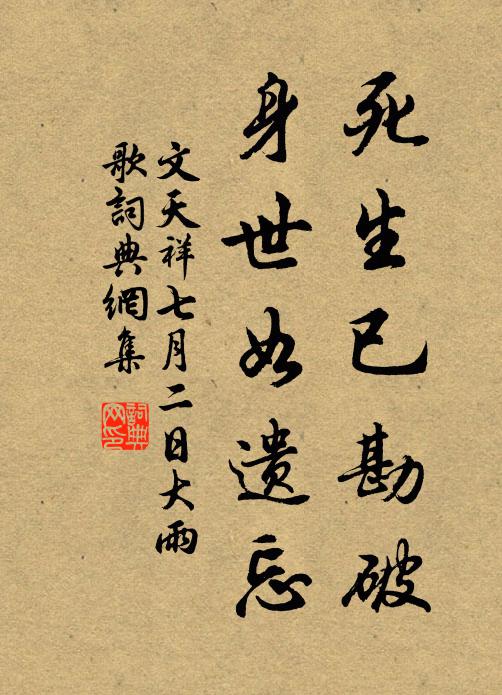 死生已勘破
身世如遺忘
文天祥七月二日大雨
歌詞典網集
詞典
网印